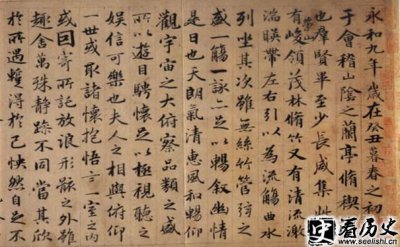 永和九年歲在癸丑暮春之初
于會稽山陰之蘭亭脩禊
也羣賢畢至少長咸集此
有崇山峻領茂林脩竹又有清流激
湍暎帶左右引以為流觴曲水
列坐其次雖無絲竹管弦之
盛一觴一詠亦足以暢敘幽情
是日也天朗氣清惠風和暢仰
觀宇宙之大俯察品類之盛
所以遊目騁懷足以極視聽之
娛信可樂也夫人之相與俯仰
一世或取諸懷抱悟言一室之內
或因寄所託放浪形骸之外雖
趣舍萬殊靜躁不同當其欣
於所遇蹔得於己怏然自足不
看历史
www.seelishi.cn